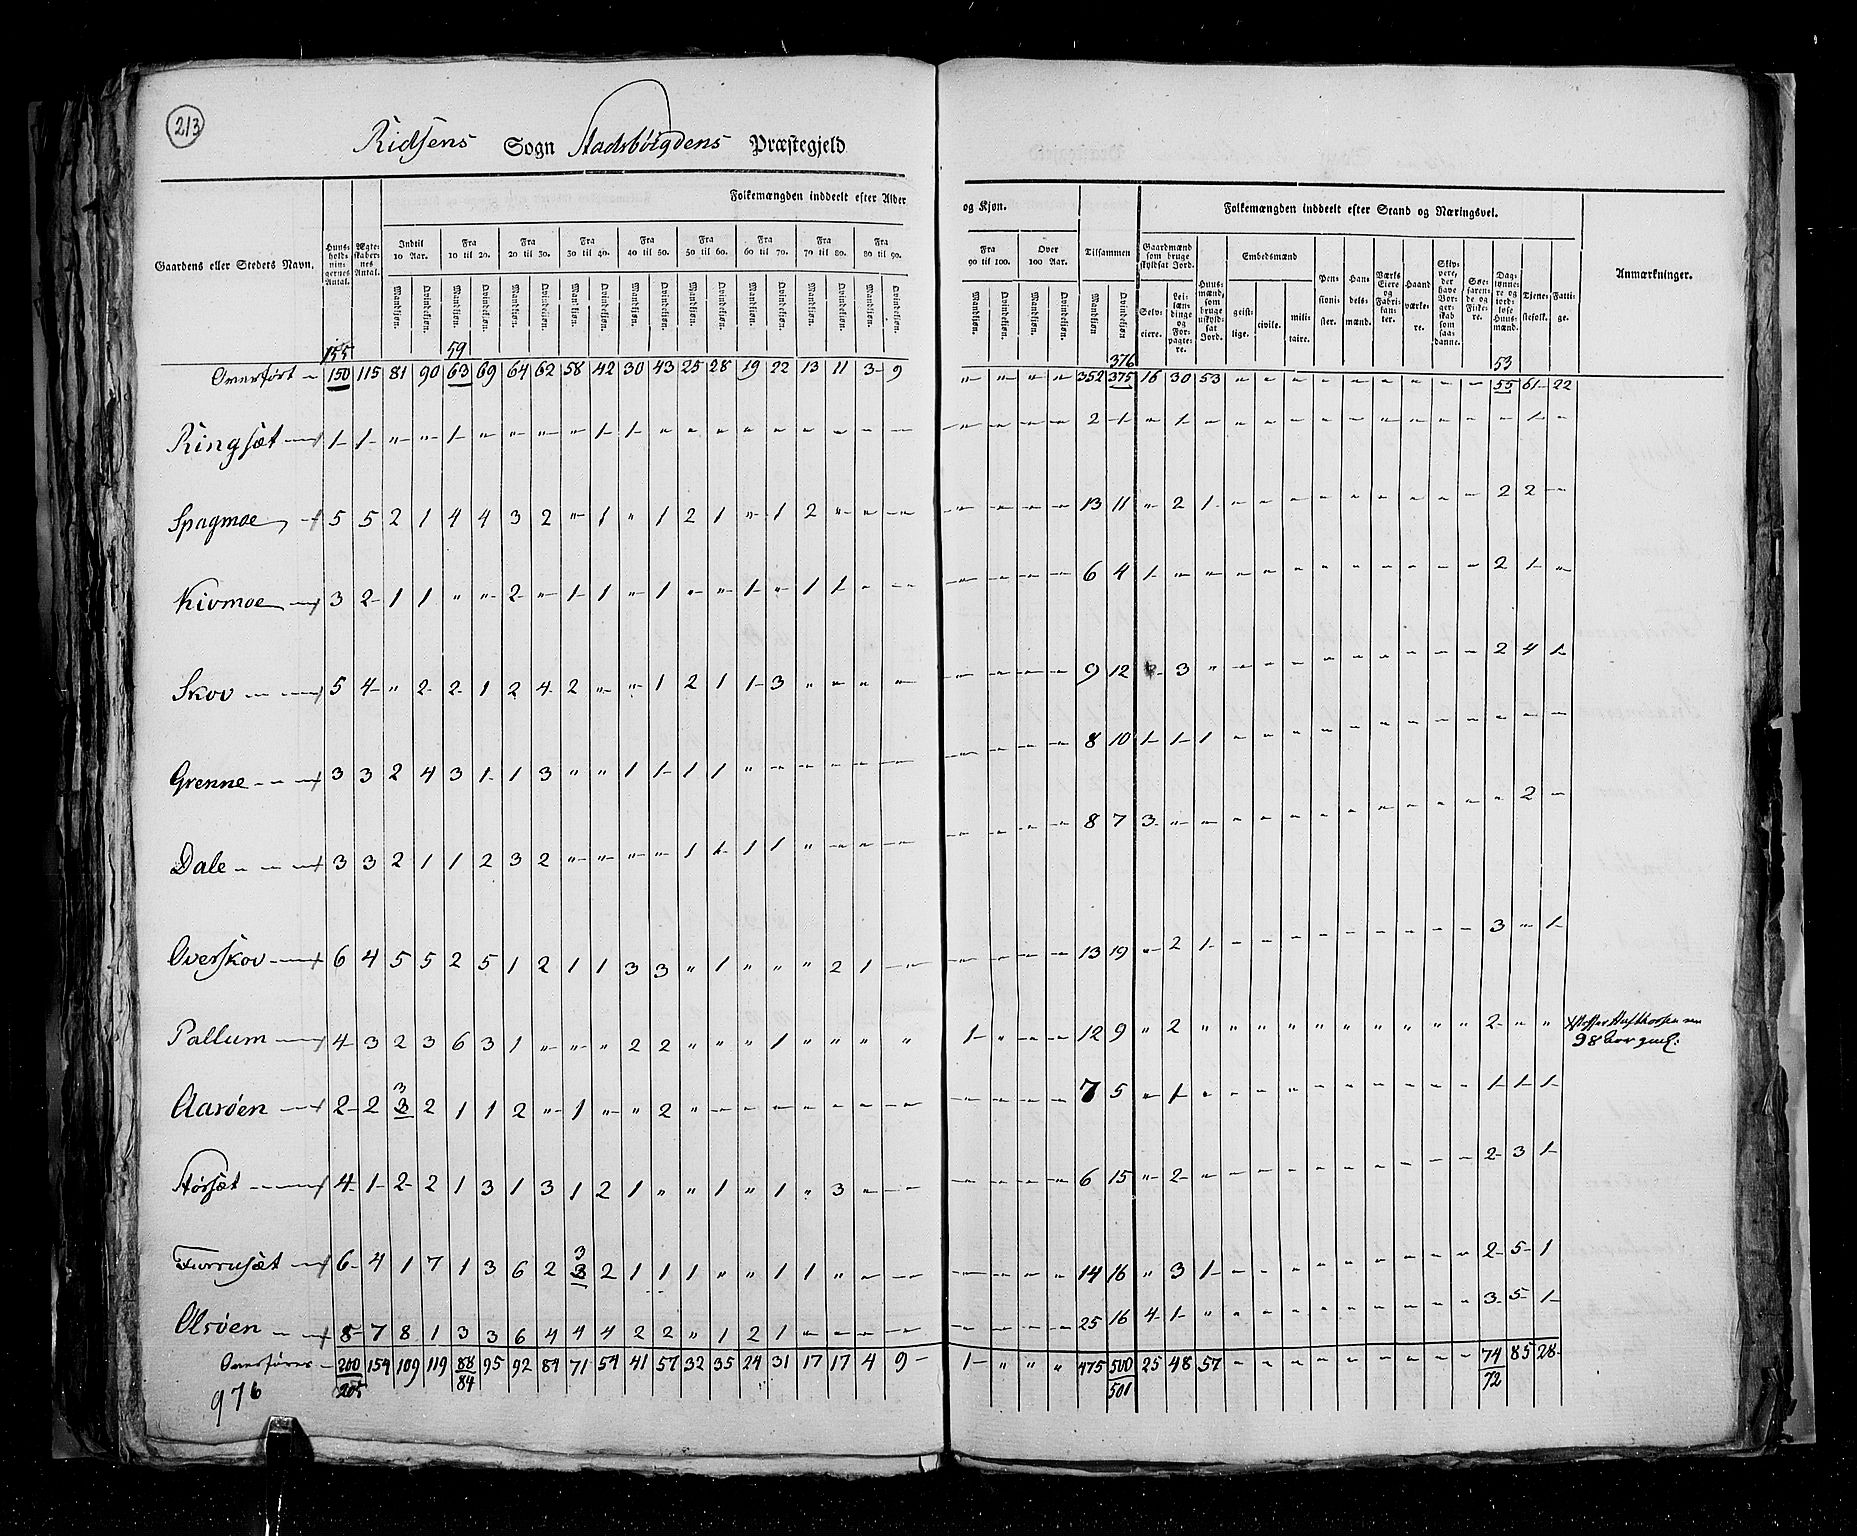 213
Ridsens Sogn Stadsbøigdens Præstegjeld
Gaardens eller Steders Navn. Huusholdningernes Antal. Ægteskabernes Antal. Folkemængden inddeelt efter Alder og Kjøn. Folkemængden inddeelt efter Stand og Næringsvei. Anmærkninger.
Indtil 10 Aar. Fra 10 til 20. Fra 20 til 30. Fra 30 til 40. Fra 40 til 50. Fra 50 til 60. Fra 60 til 70. Fra 70 til 80. Fra 80 til 90. Fra 90 til 100. Over 100 Aar. Tilsammen
Gaardmænd som bruge skyldsat Jord. Huusmænd, som bruge uskyldsat Jord. Embedsmænd Pensionister. Handelsmænd. Værks Eiere og Fabrikanter. Haandværkere. Skippere, der have Borgerskab som saadanne. Søefarende og Fiskere. Daglønnere og jordløse Huusmænd. Tjenestefolk. Fattige.
Mandkjøn. Qvindekjøn. Mandkjøn. Qvindekjøn. Mandkjøn. Qvindekjøn. Mandkjøn. Qvindekjøn. Mandkjøn. Qvindekjøn. Mandkjøn. Qvindekjøn. Mandkjøn. Qvindekjøn. Mandkjøn. Qvindekjøn. Mandkjøn. Qvindekjøn. Mandkjøn. Qvindekjøn. Mandkjøn. Qvindekjøn. Mandkjøn Qvindekjøn Selveiere. Leilændinge og Forpagtere. geistlige. civile. militaire.
155 59 376 53
Overført 150 115 81 90 63 69 64 62 58 42 30 43 25 28 19 22 13 11 3 9 " " " " 352 375 16 30 53 " " " " " " " " " 55 61 22
Ringsæt 1 1 " " 1 " " " " 1 1 " " " " " " " " " " " " " 2 1 " 1 " " " " " " " " " " " 1 "
Spagmoe 5 5 2 1 4 4 3 2 " 1 " 1 2 1 " 1 2 " " " " " " " 13 11 " 2 1 " " " " " " " " " 2 2 "
Kivmoe 3 2 1 1 " " 2 " 1 1 " 1 " " 1 " 1 1 " " " " " " 6 4 1 " " " " " " " " " " " 2 1 "
Skov 5 4 " 2 2 1 2 4 2 " " 1 2 1 1 3 " " " " " " " " 9 12 3 " " " " " " " " " " 2 4 1
Grenne 3 3 2 4 3 1 1 3 " " 1 1 1 1 " " " " " " " " " " 8 10 1 1 1 " " " " " " " " " " " "
Dale 3 3 2 1 1 2 3 2 " " " " 1 1 1 1 " " " " " " " " 8 7 3 " " " " " " " " " " " " 2 "
Overskov 6 4 5 5 2 5 1 2 1 1 3 3 " 1 " " " 2 1 " " " " " 13 19 " 2 1 " " " " " " " " " 3 " 1
Pallum 4 3 2 3 6 3 1 " " " 2 2 " " " 1 " " " " 1 " " " 12 9 " 2 " " " " " " " " " " 2 " "
98 Aar gml:
3
Aarøen 2 2 3 2 1 1 2 " 1 " " 2 " " " " " " " " " " " " 7 5 " 1 " " " " " " " " " " 1 1 1
Størsæt 4 1 2 2 1 3 1 3 1 2 1 " " 1 " 1 " 3 " " " " " " 6 15 " 2 " " " " " " " " " " 2 3 1
3
Forrusæt 6 4 1 7 1 3 6 2 3 2 1 1 1 " " 1 1 " " " " " " " 14 16 " 3 1 " " " " " " " " " 2 5 1
Olsøen 8 7 8 1 3 3 6 4 4 4 2 2 " 1 2 1 " " " " " " " " 25 16 4 1 " " " " " " " " " " 3 5 1
Overføres 200 154 109 119 88 95 92 84 71 54 41 57 32 35 24 31 17 17 4 9 1 " " " 475 500 25 48 57 " " " " " " " " " 74 85 28
976 205 84 501 72